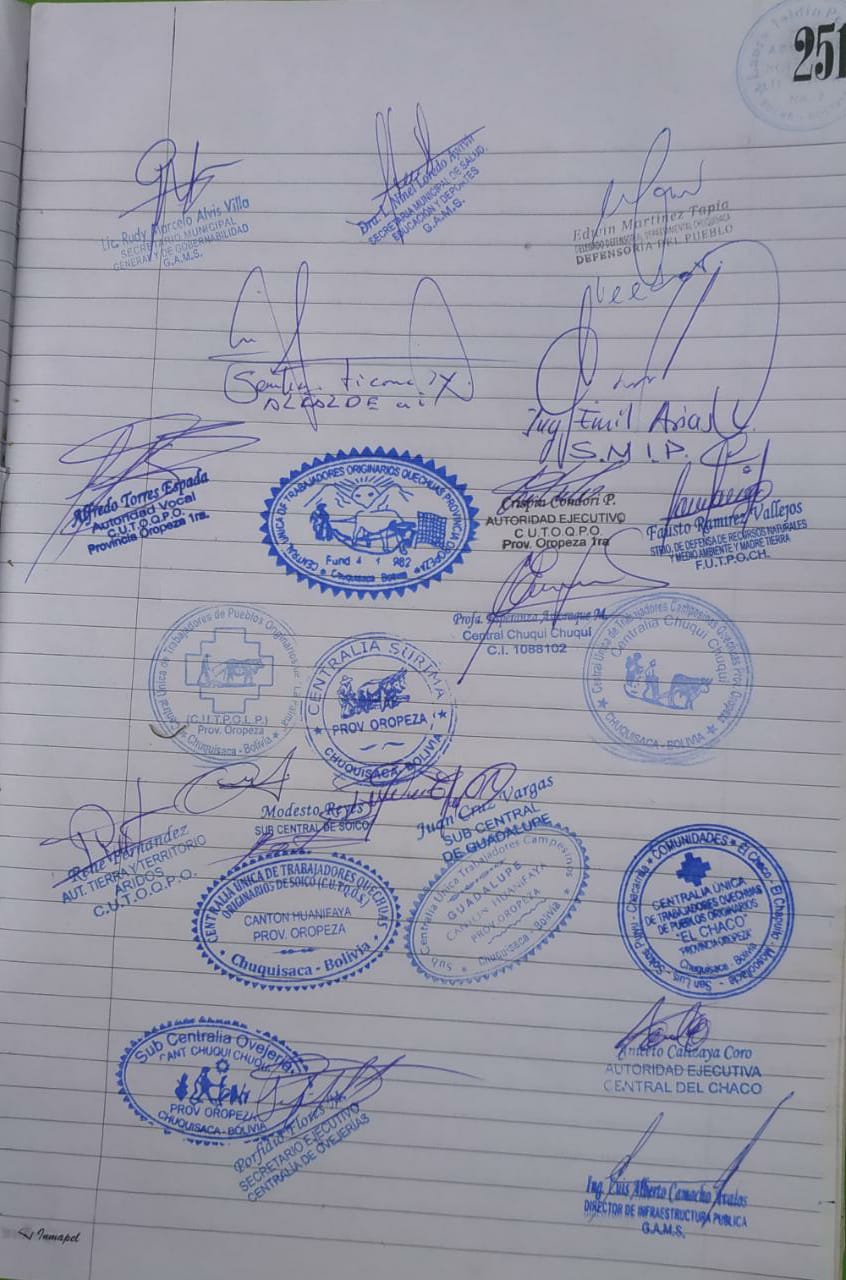 251
Lic. Rudy Marcelo Alvis Villa
SECRETARIO MUNICIPAL
GENERAL Y DE GOBERNABILIDAD
G.A.M.S.
Dra. L. Ninel Loredo
SECRETARIA MUNICIPAL DE SALUD,
EDUCACIÓN Y DEPORTES
G.A.M.S.
Edwin Martinez Tapia
DEFENSORIA DEL PUEBLO
ALCALDE ai
Ing Emil Arias
S.M.I.P.
Alfredo Torres Espada
Autoridad Vocal
C.U.T.O.Q.P.O.
Provincia Oropeza 1ra.
CENTRAL ÚNICA DE TRABAJADORES ORIGINARIOS QUECHUAS PROVINCIA OROPEZA
Chuquisaca - Bolivia
Crispin Condori P.
AUTORIDAD EJECUTIVO
C.U.T.O.Q.P.O.
Prov. Oropeza 1ra
Fausto Ramirez Vallejos
STRIO. DE DEFENSA DE RECURSOS NATURALES
Y MEDIO AMBIENTE Y MADRE TIERRA
F.U.T.P.O.CH.
Profa. M.
Central Chuqui Chuqui
C.I. 1088102
Central Única de Trabajadores de Pueblos Originarios
(C.U.T.P.O.L.P.)
Prov. Oropeza
Chuquisaca - Bolivia
CENTRALIA SURIMA
PROV OROPEZA
CHUQUISACA - BOLIVIA
Central Única de Trabajadores Campesinos Quechuas Prov. Oropeza
Centralia Chuqui Chuqui
CHUQUISACA - BOLIVIA
Rene Fernandez
AUT. TIERRA Y TERRITORIO
ARIDOS
C.U.T.O.Q.P.O.
Modesto Reyes
SUB CENTRAL DE SOICO
Juan Cruz Vargas
SUB CENTRAL
DE GUADALUPE
CENTRALIA ÚNICA DE TRABAJADORES QUECHUAS
ORIGINARIOS DE SOICO (C.U.T.Q.O.S.)
CANTON HUANIFAYA
PROV. OROPEZA
Chuquisaca - Bolivia
Sub Centralia Única Trabajadores Campesinos
GUADALUPE
CANTON HUANIFAYA
PROV. OROPEZA
Chuquisaca - Bolivia
COMUNIDADES
El Chaco - El Chaquito
San Luis
CENTRALIA ÚNICA
DE TRABAJADORES QUECHUAS
DE PUEBLOS ORIGINARIOS
"EL CHACO"
"PROVINCIA OROPEZA"
Chuquisaca - Bolivia
Sub Centralia Ovejeria
CANT CHUQUI CHUQUI
PROV OROPEZA
CHUQUISACA - BOLIVIA
Porfidio Flores
SECRETARIO EJECUTIVO
CENTRALIA DE OVEJERIAS
Aniceto Calizaya Coro
AUTORIDAD EJECUTIVA
CENTRAL DEL CHACO
Ing. Luis Alberto Camacho Avalos
DIRECTOR DE INFRAESTRUCTURA PUBLICA
G.A.M.S.
Inmapel